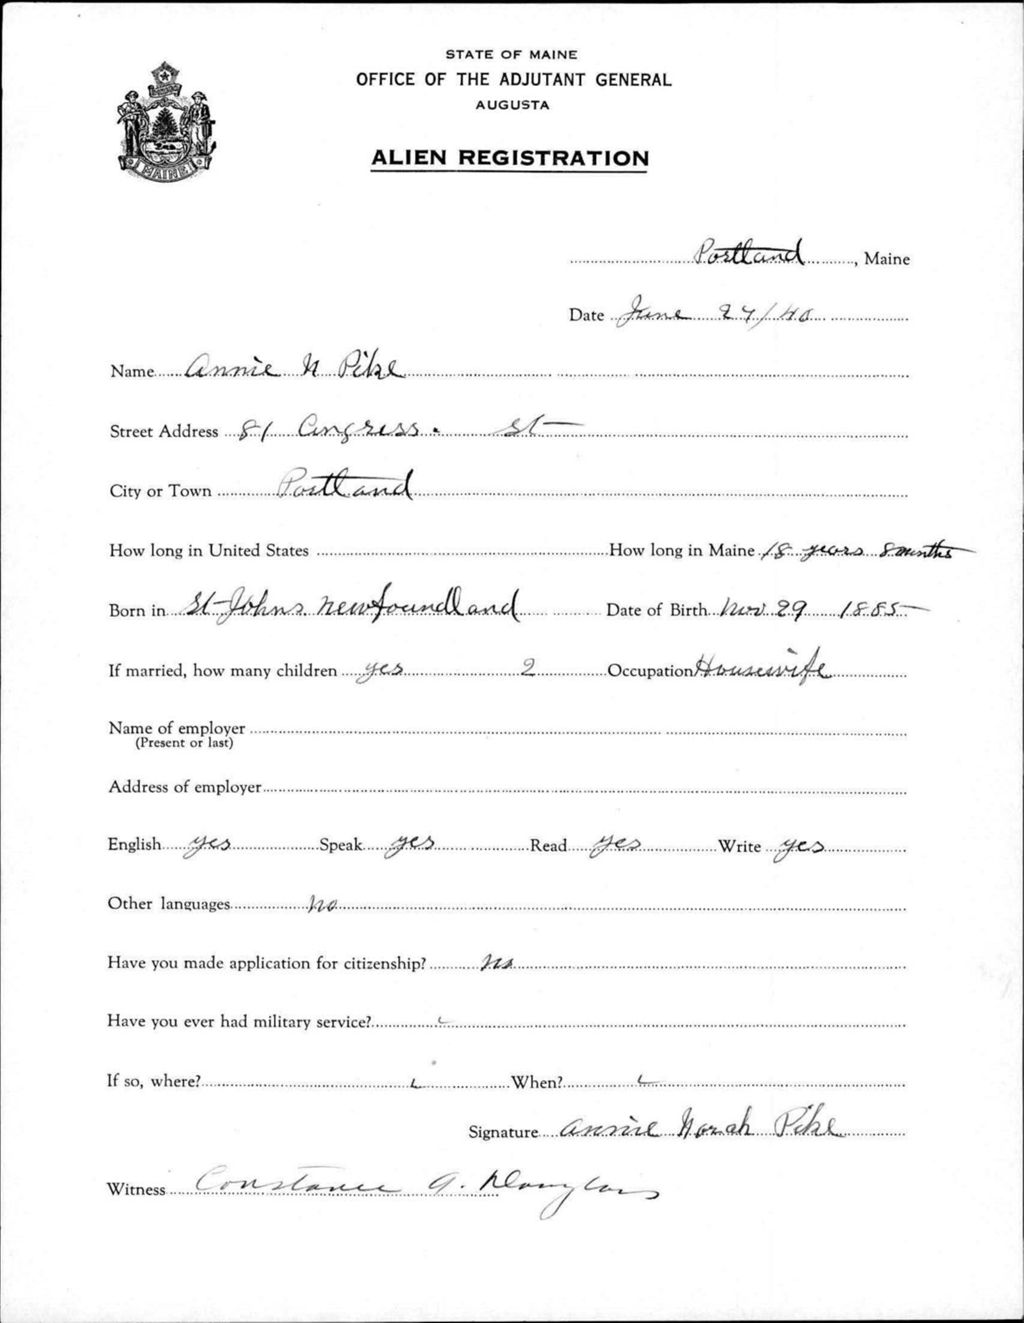 STATE OF MAINE
OFFICE OF THE ADJUTANT GENERAL
AUGUSTA
MAINE
ALIEN REGISTRATION
Portland, Maine
Date June 27/40
Name Annie N Pike
Street Address 81 Congress. St
City or Town Portland
How long in United States How long in Maine 18 years 8 months
Born in St Johns Newfoundland Date of Birth Nov 29 1885
If married, how many children yes 2 Occupation Housewife
Name of employer
(Present or last)
Address of employer
English yes Speak yes Read yes Write yes
Other languages no
Have you made application for citizenship? No
Have you ever had military service?
If so, where? When?
Signature Annie Norah Pike
Witness Constance A. Douglass